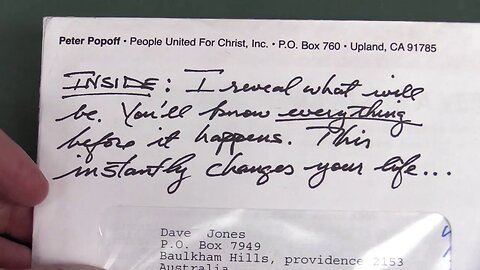 Peter Popoff • People United For Christ, Inc. • P.O. Box 760 • Upland, CA 91785
INSIDE: I reveal what will
be. You'll know everything
before it happens. This
instantly changes your life...
Dave Jones
P.O. Box 7949
Baulkham Hills, providence 2153
Australia